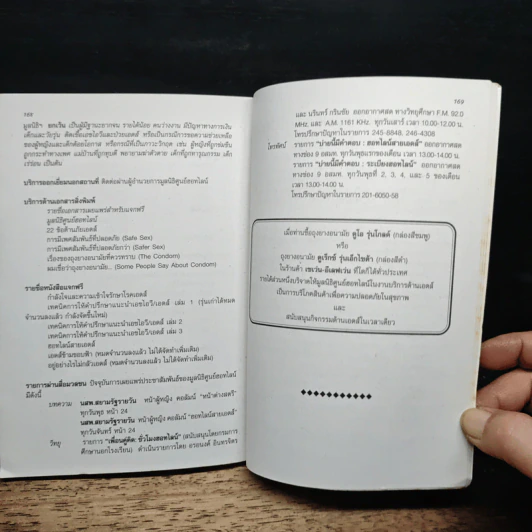 168
มูลนิธิฯ ยกเว้น เป็นผู้มีฐานะยากจน รายได้น้อย คนว่างงาน มีปัญหาทางการเงิน
เด็กและวัยรุ่น ติดเชื้อเอชไอวีและป่วยเอดส์ หรือเป็นกรณีการขอความช่วยเหลือ
ของผู้หญิงและเด็กด้อยโอกาส หรือกรณีที่เป็นภาวะวิกฤต เช่น ผู้หญิงที่ถูกข่มขืน
ถูกกระทำทางเพศ แม่บ้านที่ถูกทุบตี พยายามฆ่าตัวตาย เด็กที่ทารุณกรรม เด็ก
เร่ร่อน เป็นต้น
บริการออกเยี่ยมนอกสถานที่ ติดต่อผ่านผู้อำนวยการมูลนิธิศูนย์ฮอทไลน์
บริการด้านเอกสารสิ่งพิมพ์
รายชื่อเอกสารเผยแพร่สำหรับแจกฟรี
มูลนิธิศูนย์ฮอทไลน์
22 ข้อต้านภัยเอดส์
การมีเพศสัมพันธ์ที่ปลอดภัย (Safe Sex)
การมีเพศสัมพันธ์ที่ปลอดภัยกว่า (Safer Sex)
เรื่องของถุงยางอนามัยที่ควรทราบ (The Condom)
ผมเชื่อว่าถุงยางอนามัย.. (Some People Say About Condom)
รายชื่อหนังสือแจกฟรี
กำลังใจและความเข้าใจรักษาโรคเอดส์
เทคนิคการให้คำปรึกษาแนะนำเอชไอวี/เอดส์ เล่ม 1 (รุ่นเก่าได้หมด
จำนวนลงแล้ว กำลังจัดขึ้นใหม่)
เทคนิคการให้คำปรึกษาแนะนำเอชไอวี/เอดส์ เล่ม 2
เทคนิคการให้คำปรึกษาแนะนำเอชไอวี/เอดส์ เล่ม 3
ฮอทไลน์สายเอดส์
เอดส์ข้ามขอบฟ้า (หมดจำนวนลงแล้ว ไม่ได้จัดทำเพิ่มเติม)
อยู่อย่างไรไม่กลัวเอดส์ (หมดจำนวนลงแล้ว ไม่ได้จัดทำเพิ่มเติม)
รายการผ่านสื่อมวลชน ปัจจุบันการเผยแพร่ประชาสัมพันธ์ของมูลนิธิศูนย์ฮอทไลน์
มีดังนี้
บทความ นสพ.สยามรัฐรายวัน หน้าผู้หญิง คอลัมน์ "หน้าต่างเสรี"
ทุกวันพุธ หน้า 24
นสพ.สยามรัฐรายวัน หน้าผู้หญิง คอลัมน์ "ฮอทไลน์สายเอดส์"
ทุกวันจันทร์ หน้า 24
วิทยุ รายการ "เพื่อนคู่คิด: ชั่วโมงฮอทไลน์" (สนับสนุนโดยกรมการ
ศึกษานอกโรงเรียน) ดำเนินรายการโดย อรอนงค์ อินทรจิตร
169
และ นรินทร์ กรินชัย ออกอากาศสด ทางวิทยุศึกษา F.M. 92.0
MHz. และ A.M. 1161 KHz. ทุกวันเสาร์ เวลา 10.00-12.00 น.
โทรปรึกษาปัญหาในรายการ 245-8848, 246-4308
โทรทัศน์ รายการ "บ่ายนี้มีคำตอบ : ฮอทไลน์สายเอดส์" ออกอากาศสด
ทางช่อง 9 อสมท. ทุกวันพุธแรกของเดือน เวลา 13.00-14.00 น.
รายการ "บ่ายนี้มีคำตอบ : ระเบียงฮอทไลน์" ออกอากาศสด
ทางช่อง 9 อสมท. ทุกวันพุธที่ 2, 3, 4, และ 5 ของเดือน
เวลา 13.00-14.00 น.
โทรปรึกษาปัญหาในรายการ 201-6050-58
เมื่อท่านซื้อถุงยางอนามัย ดูโอ รุ่นโกลด์ (กล่องสีชมพู)
หรือ
ถุงยางอนามัย ดูเร็กซ์ รุ่นเอ็กไซด้า (กล่องสีดำ)
ในร้านค้า เซเว่น-อีเลฟเว่น ที่ใดก็ได้ทั่วประเทศ
รายได้ส่วนหนึ่งบริจาคให้มูลนิธิศูนย์ฮอทไลน์ในงานบริการด้านเอดส์
เป็นการบริโภคสินค้าเพื่อความปลอดภัยในสุขภาพ
และ
สนับสนุนกิจกรรมด้านเอดส์ในเวลาเดียว